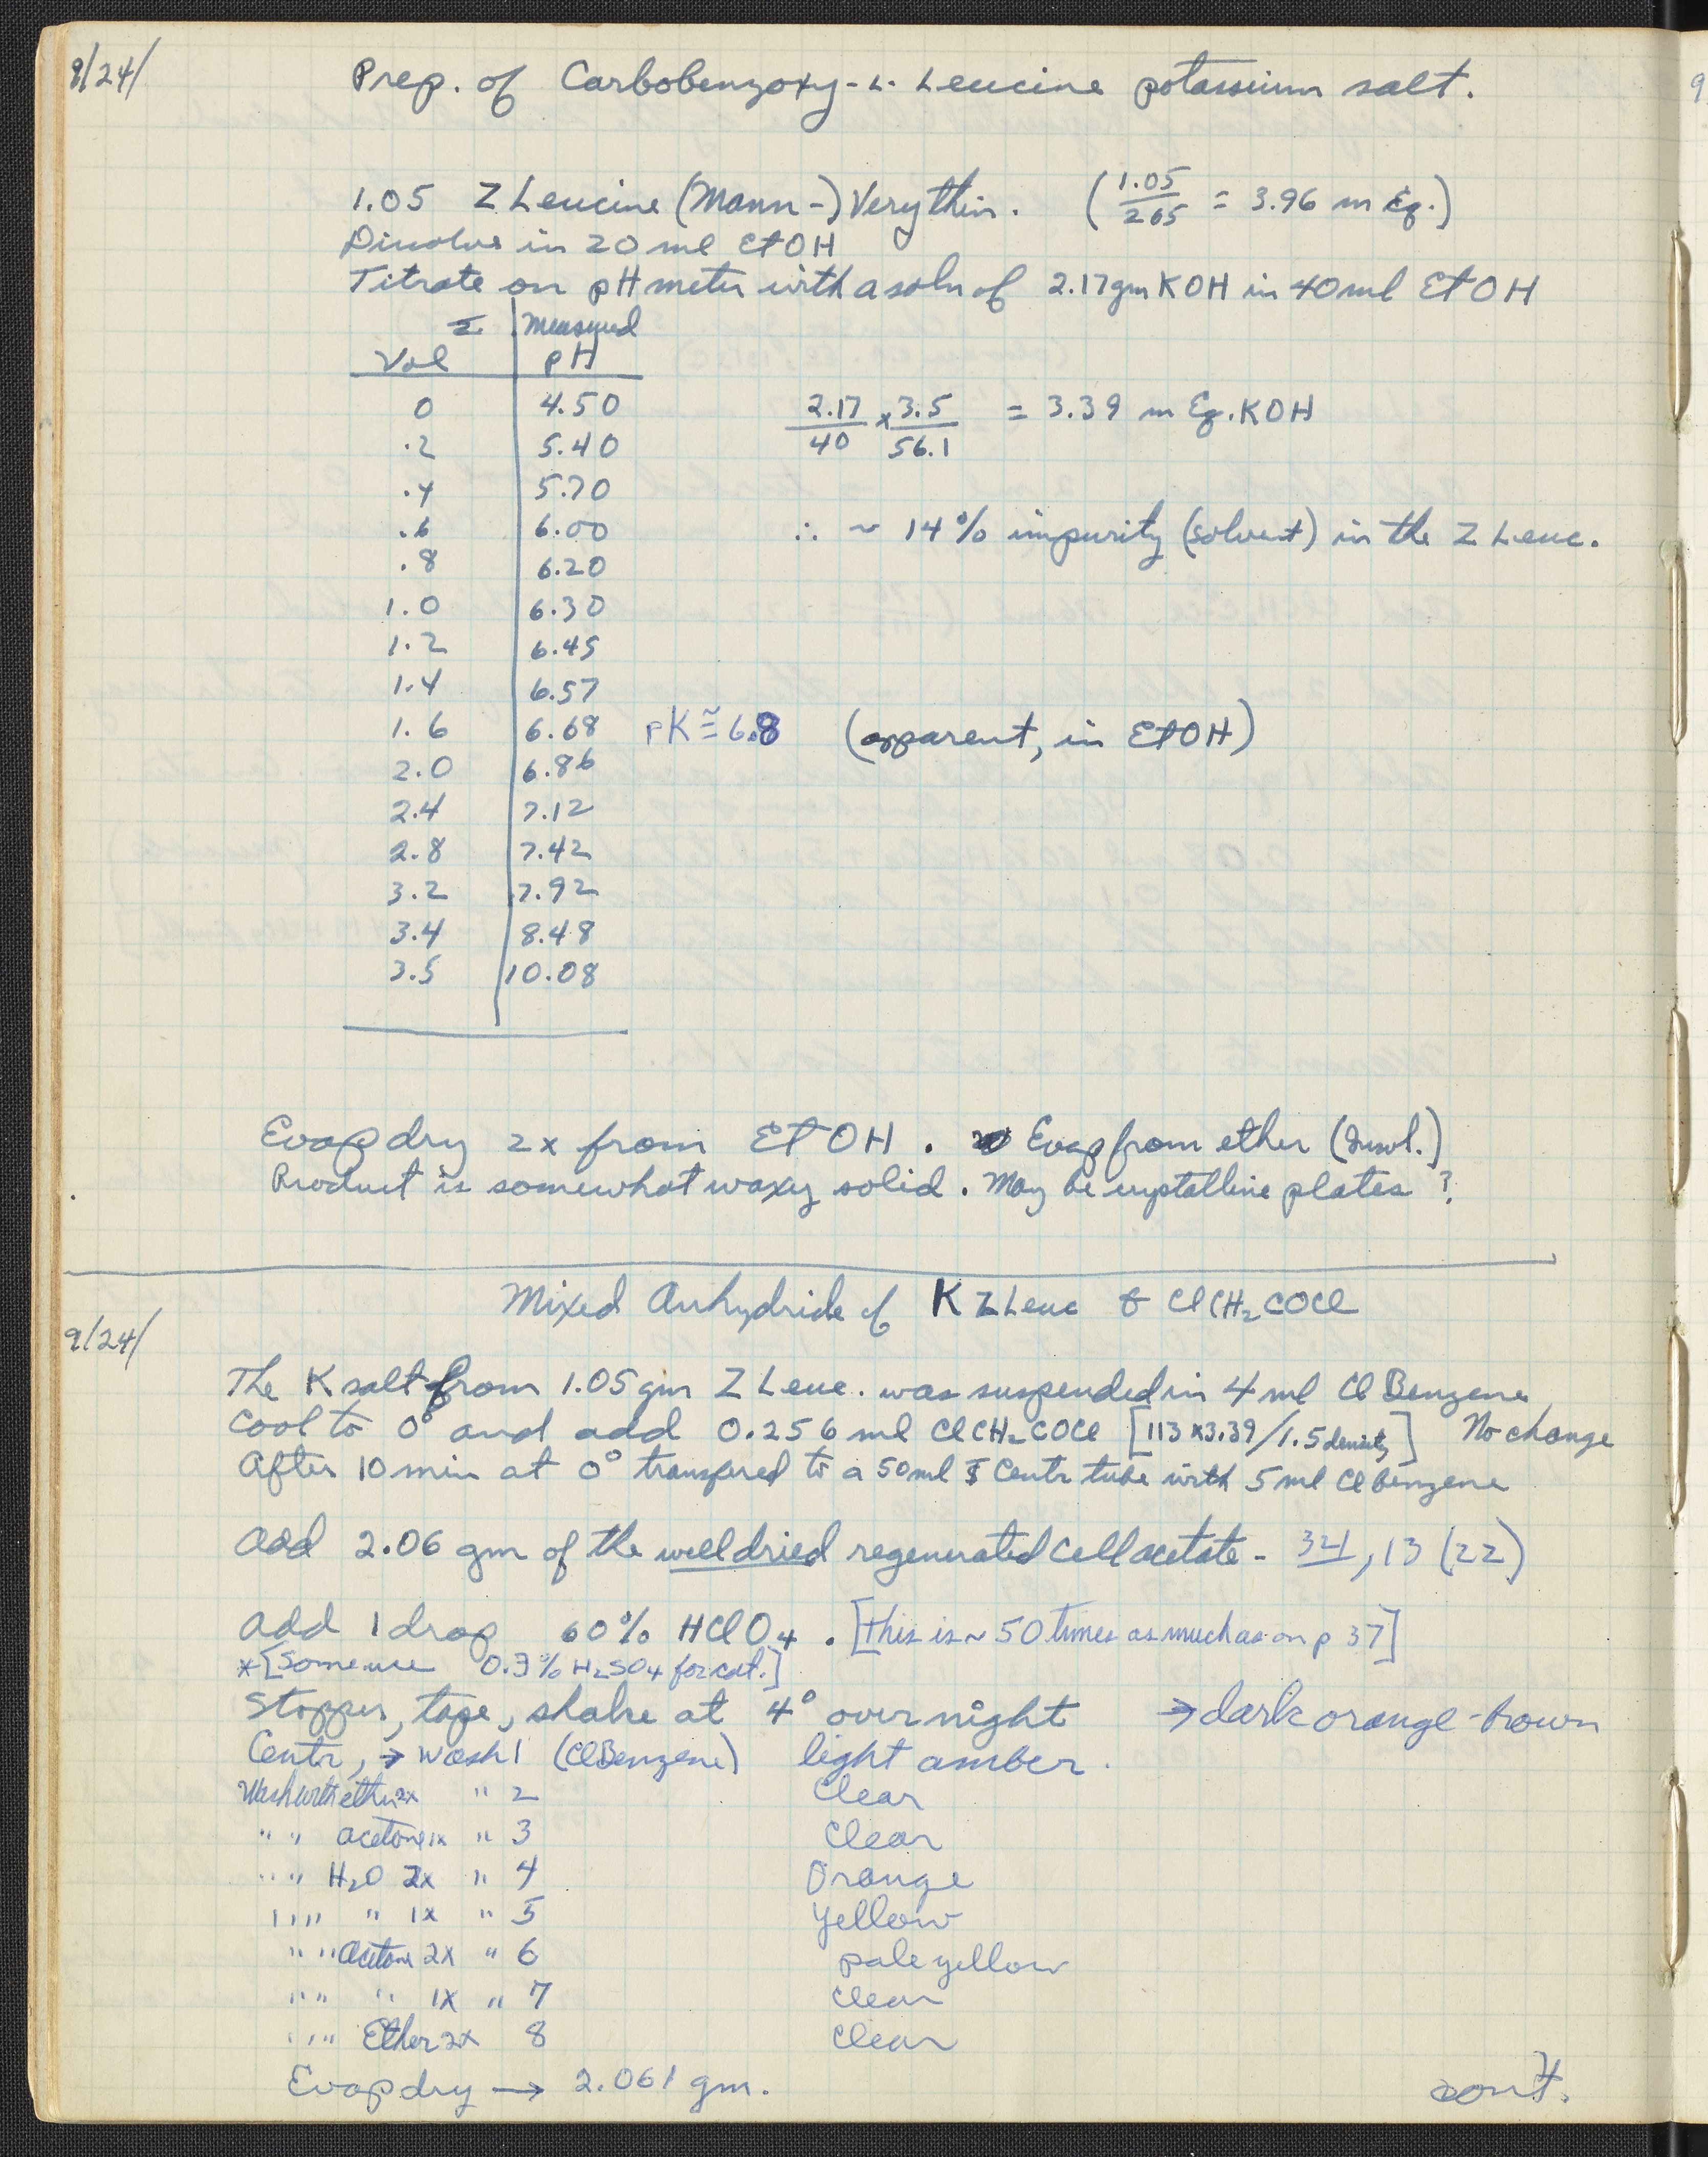 9/24/
Prep. of Carbobenzoxy-L-Leucine potassium salt.
1.05 Z Leucine (Mann-) Very thin. (1.05/265 = 3.96 m Eq.)
Dissolve in 20 ml EtOH
Titrate on pH meter with a soln of 2.17 gm KOH in 40 ml EtOH
Σ Measured
Vol pH
0 4.50 2.17/40 x 3.5/56.1 = 3.39 m Eq. KOH
.2 5.40
.4 5.70
.6 6.00 ∴ ~ 14% impurity (solvent) in the Z Leuc.
.8 6.20
1.0 6.30
1.2 6.45
1.4 6.57
1.6 6.68 pK ≅ 6.8 (apparent, in EtOH)
2.0 6.86
2.4 7.12
2.8 7.42
3.2 7.92
3.4 8.48
3.5 10.08
Evap dry 2x from EtOH. Evap from ether (Insol.)
Product is somewhat waxy solid. May be crystalline plates?
Mixed Anhydride of K Z Leuc & ClCH₂COCl
9/24/
The K salt from 1.05 gm Z Leuc. was suspended in 4 ml Cl Benzene
Cool to 0° and add 0.256 ml ClCH₂COCl [113 x 3.39/1.5 density] No change
After 10 min at 0° transfered to a 50 ml Centr tube with 5 ml Cl Benzene
Add 2.06 gm of the well dried regenerated Cell acetate - 321, 13 (22)
Add 1 drop 60% HClO₄. [this is ~ 50 times as much as on p 37]
*[Some use 0.3% H₂SO₄ for cat.]
Stopper, tape, shake at 4° over night → dark orange-brown
Centr, → Wash 1 (Cl Benzene) light amber.
Wash with ether 2x " 2 Clear
" " acetone 1x " 3 Clear
" " H₂O 2x " 4 Orange
" " " 1x " 5 Yellow
" " Acetone 2x " 6 pale yellow
" " " 1x " 7 Clear
" " Ether 2x 8 Clear
Evap dry → 2.061 gm.
cont.